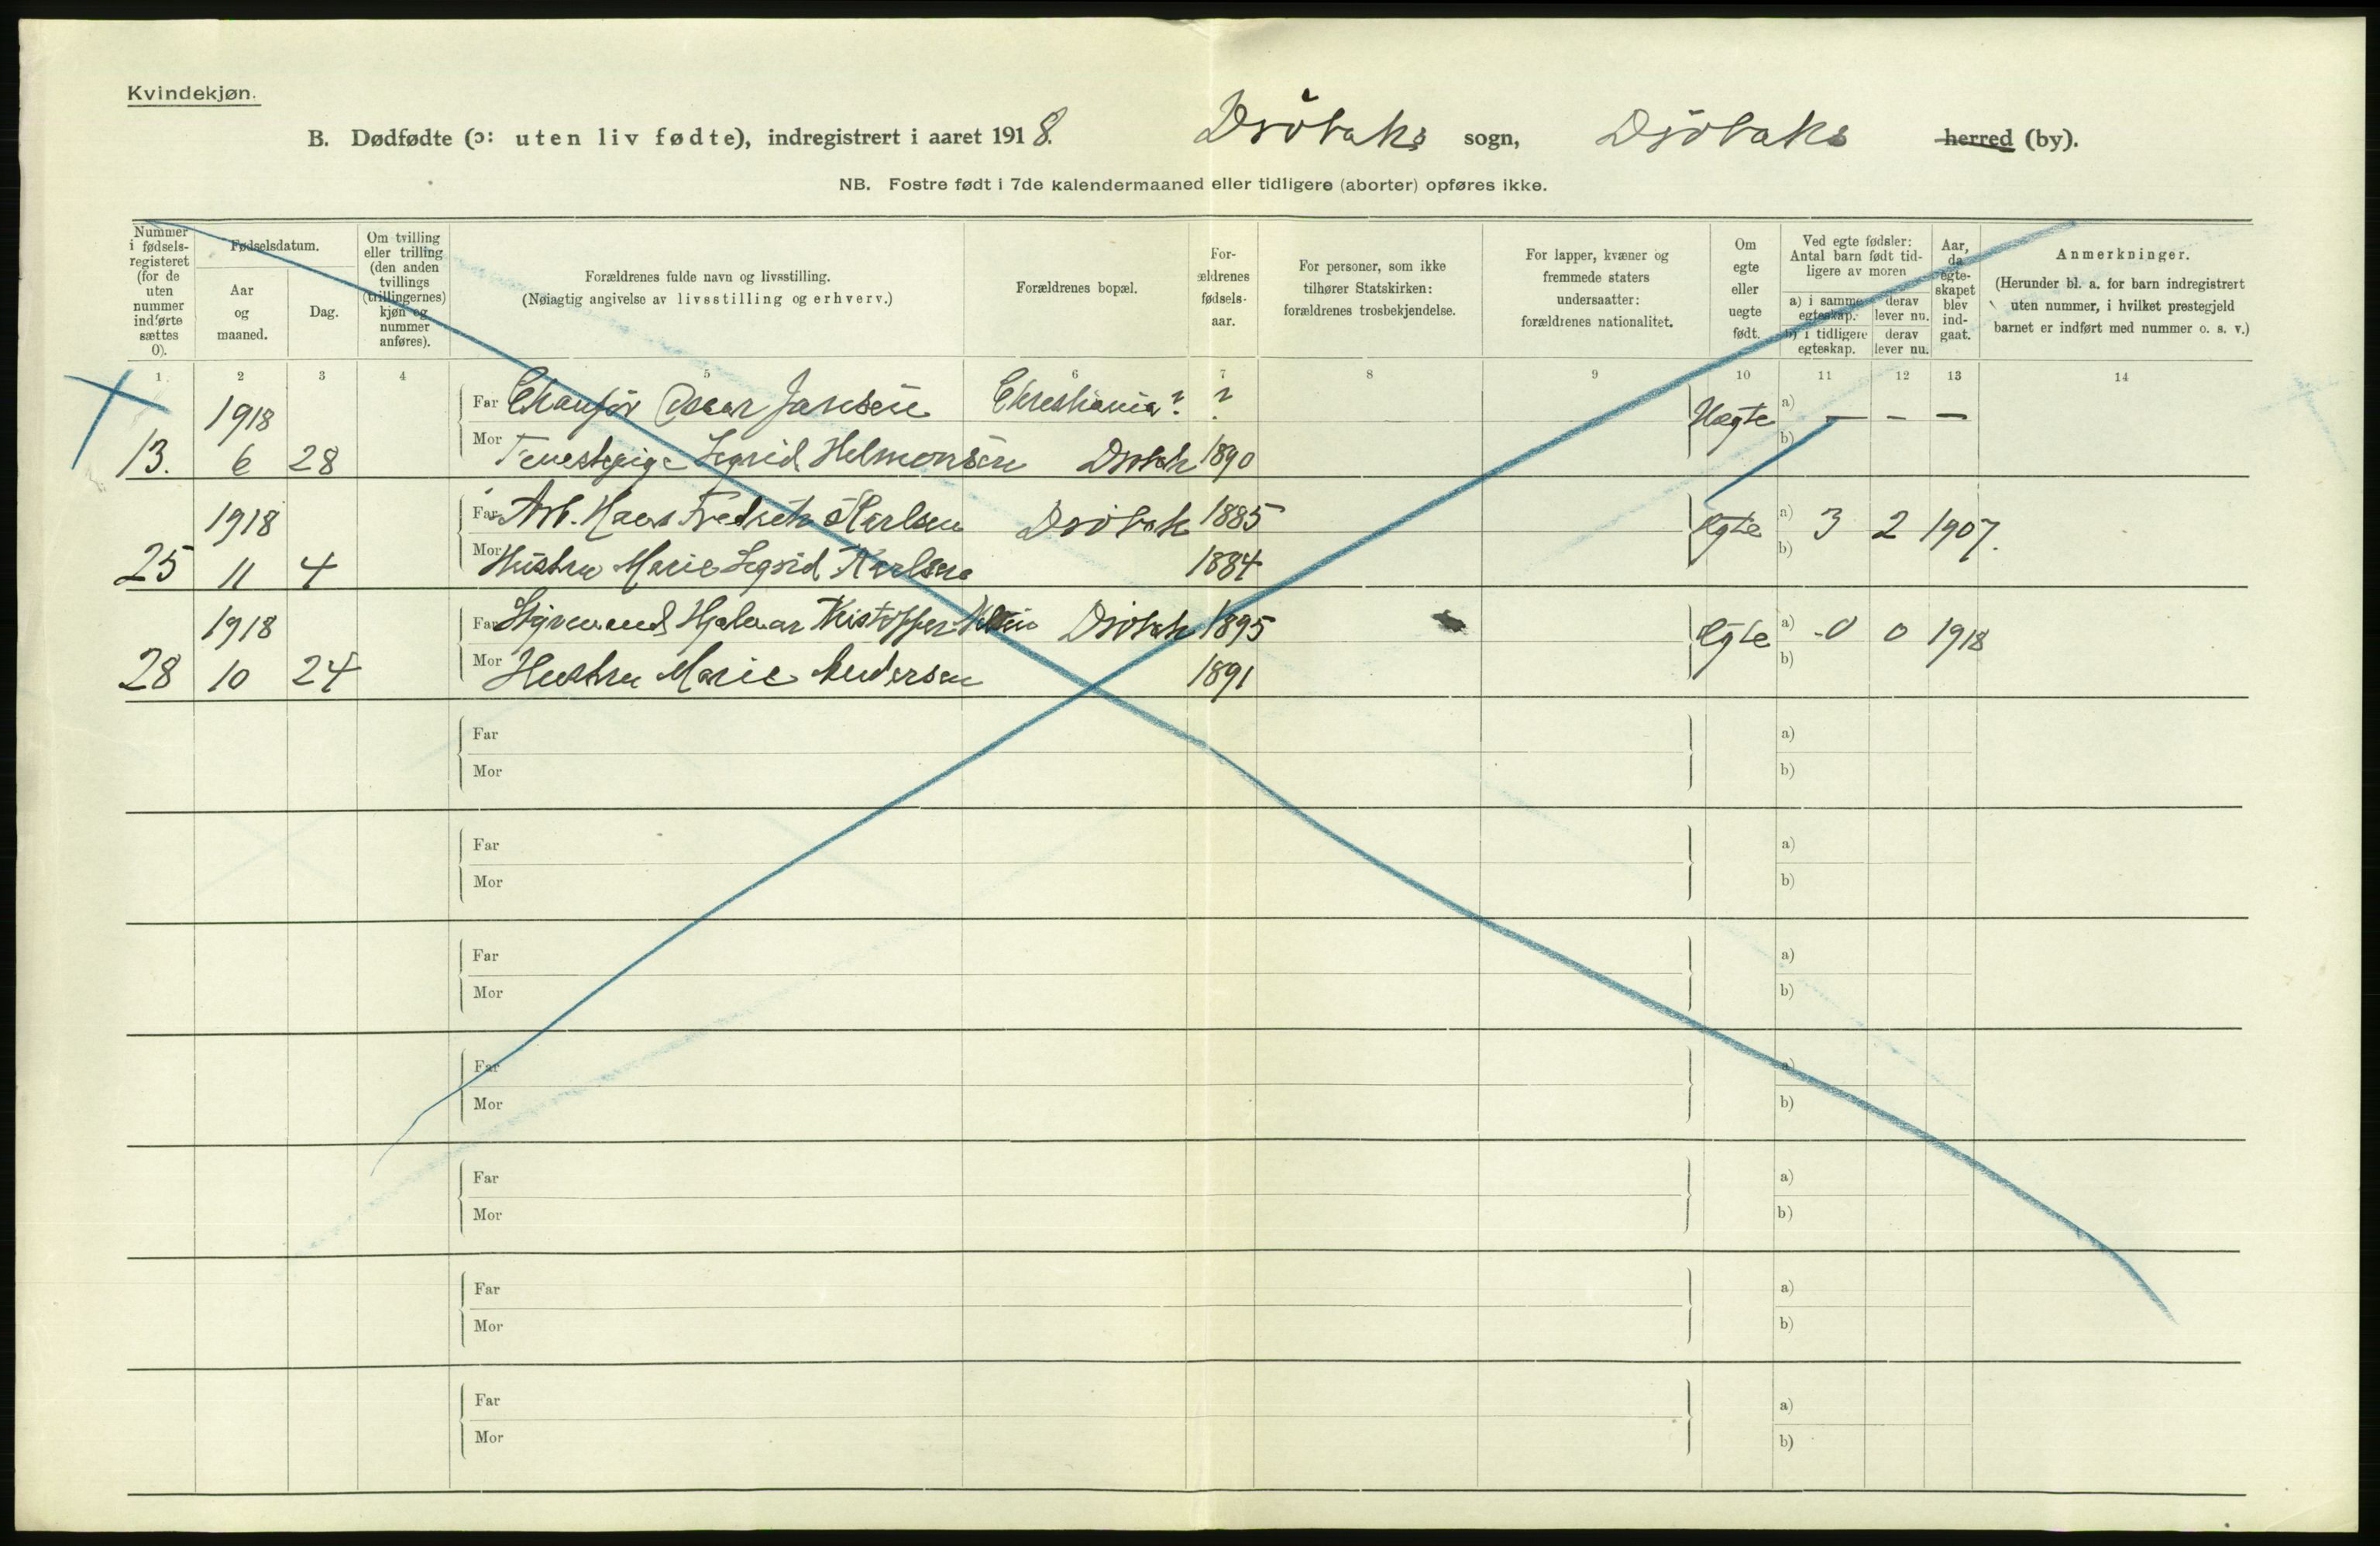 Kvindekjøn.
B. Dødfødte (ɔ: uten liv fødte), indregistrert i aaret 1918. Drøbaks sogn, Drøbaks herred (by).
NB. Fostre født i 7de kalendermaaned eller tidligere (aborter) opføres ikke.
Nummer i fødsels-registeret (for de uten nummer indførte sættes 0).
Fødselsdatum.
Aar og maaned.
Dag.
Om tvilling eller trilling (den anden tvillings (trillingernes) kjøn og nummer anføres).
Forældrenes fulde navn og livsstilling.
(Nøiagtig angivelse av livsstilling og erhverv.)
Forældrenes bopæl.
For-ældrenes fødsels-aar.
For personer, som ikke tilhører Statskirken: forældrenes trosbekjendelse.
For lapper, kvæner og fremmede staters undersaatter: forældrenes nationalitet.
Om egte eller uegte født.
Ved egte fødsler: Antal barn født tid-ligere av moren
a) i samme egteskap.
derav lever nu.
b) i tidligere egteskap.
derav lever nu.
Aar, da egte-skapet blev ind-gaat.
Anmerkninger.
(Herunder bl. a. for barn indregistrert uten nummer, i hvilket prestegjeld barnet er indført med nummer o. s. v.)
1 2 3 4 5 6 7 8 9 10 11 12 13 14
1918 Far Chauffør Oscar Jansen Christiania? ? Uegte a) — — —
13. 6 28 Mor Tjenestepige Sigrid Helmonsen Drøbak 1890 b)
1918 Far Arb. Hans Fredrik Karlsen Drøbak 1885 Egte a) 3 2 1907.
25 11 4 Mor Hustru Marie Sigrid Karlsen 1884 b)
1918 Far Styrmand Hjalmar Kristoffer Drøbak 1895 Egte a) 0 0 1918
28 10 24 Mor Hustru Marie Andersen 1891 b)
Far a)
Mor b)
Far a)
Mor b)
Far a)
Mor b)
Far a)
Mor b)
Far a)
Mor b)
Far a)
Mor b)
Far a)
Mor b)